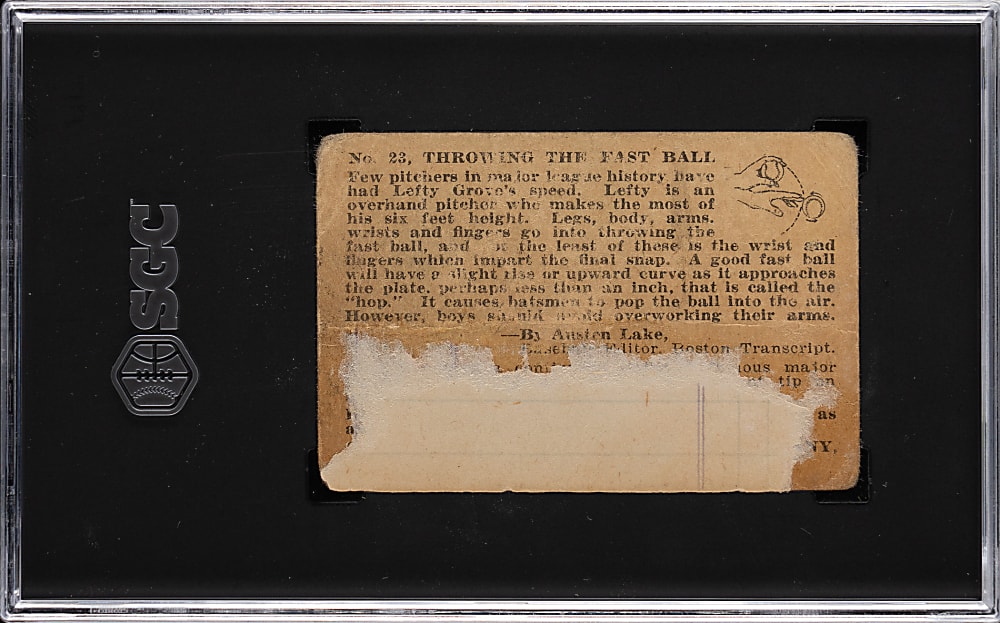 SGC
No. 23, THROWING THE FAST BALL
Few pitchers in major league history have
had Lefty Grove's speed. Lefty is an
overhand pitcher who makes the most of
his six feet height. Legs, body, arms.
wrists and fingers go into throwing the
fast ball, and the least of these is the wrist and
fingers which impart the final snap. A good fast ball
will have a slight rise or upward curve as it approaches
the plate, perhaps less than an inch, that is called the
"hop." It causes batsmen to pop the ball into the air.
However, boys should avoid overworking their arms.
—By Austen Lake,
Baseball Editor, Boston Transcript.
major
tip on
as
NY.